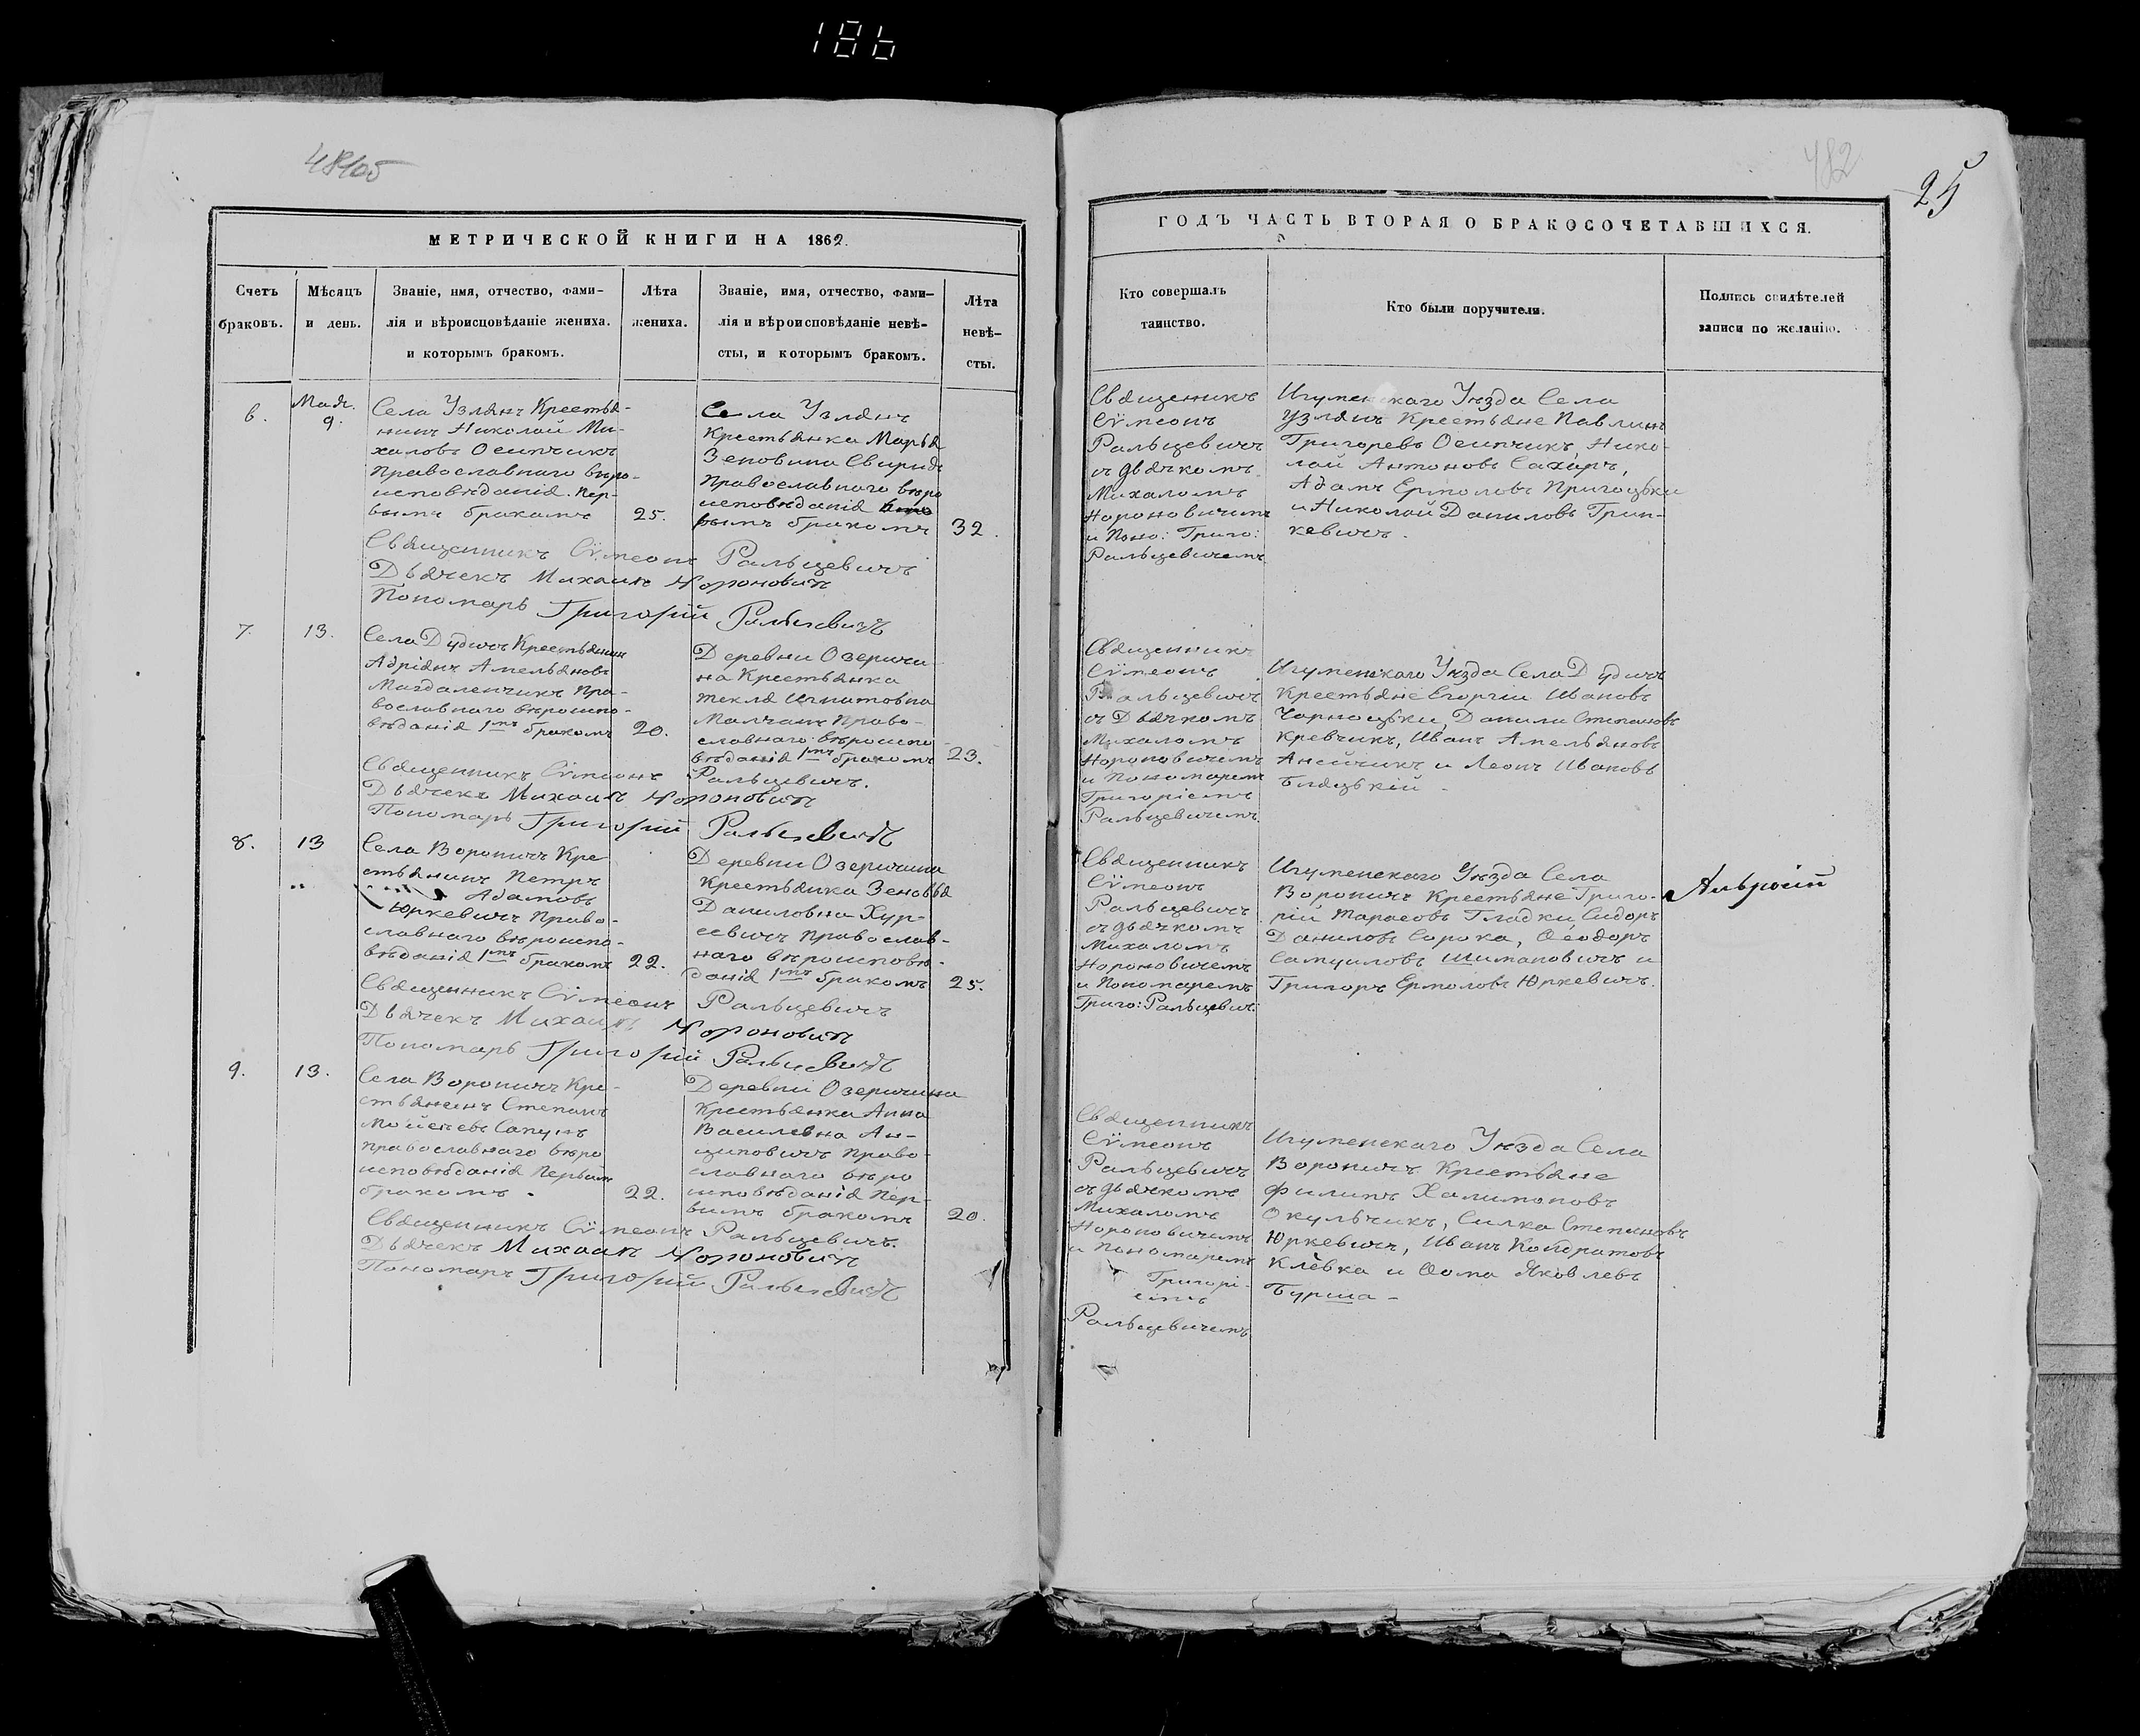 186
482
25
МЕТРИЧЕСКОЙ КНИГИ НА 1862.
ГОДЪ ЧАСТЬ ВТОРАЯ О БРАКОСОЧЕТАВШИХСЯ.
Счетъ
браковъ.
Мѣсяцъ
и день.
Званіе, имя, отчество, фами-
лія и вѣроисповѣданіе жениха.
и которымъ бракомъ.
Лѣта
жениха.
Званіе, имя, отчество, фами-
лія и вѣроисповѣданіе невѣ-
сты, и которымъ бракомъ.
Лѣта
невѣ-
сты.
Кто совершалъ
таинство.
Кто были поручители.
Подпись свидѣтелей
записи по желанію.
6.
Мая.
9.
Села Узлянъ Крестья-
нинъ Николай Ми-
халовъ Осипчикъ
Православнаго вѣро-
исповѣданія. Пер-
вымъ бракомъ
25.
Села Узлянъ
Крестьянка Марья
Зеновина Свиридъ
Православнаго вѣро
исповѣданія
рымъ бракомъ
32.
Священникъ
Сѵмеонъ
Ральцевичъ
съ дьячкомъ
Михаломъ
Нороновичемъ
и Поно: Григо:
Ральцевичемъ
Игуменскаго Уѣзда Села
Узлянъ Крестьяне Павлинъ
Григоревъ Осипчикъ, Нико-
лай Антоновъ Сахаръ,
Адамъ Ермоловъ Пригоцьки
и Николай Даниловъ Грин-
кевичъ.
Священникъ Сѵмеонъ Ральцевичъ
Дьячекъ Михаилъ Нороновичъ
Пономарь Григорій Ральцевичъ
7.
13.
Села Дудичъ Крестьянин
Адріянъ Амельяновъ
Магдаленчикъ Пра-
вославнаго вѣроиспо-
вѣданія 1мъ бракомъ
20.
Деревни Озеричи-
на Крестьянка
Текля Игнатовна
Малчанъ Право-
славнаго вѣроиспо
вѣданія 1мъ бракомъ
23.
Священникъ
Сѵмеонъ
Ральцевичъ
съ Дьячкомъ
Михаломъ
Нороновичемъ
и Пономаремъ
Григоріемъ
Ральцевичемъ.
Игуменскаго Уѣзда Села Дудичъ
Крестьяне Егоргіи Ивановъ
Чарноцьки, Данили Степановъ
Кревчикъ, Иванъ Амельяновъ
Анейчикъ и Леонъ Ивановъ
Бляцькій -
Священникъ Сѵмеонъ Ральцевичъ.
Дьячекъ Михаилъ Нороновичъ
Пономарь Григорій Ральцевичъ
8.
13
Села Воропичъ Кре
стьянинъ Петръ
Адамовъ
Юркевичъ Право-
славнаго вѣроиспо-
вѣданія 1мъ бракомъ
22.
Деревни Озеричина
Крестьянка Зеновья
Даниловна Хур-
севичъ Православ-
наго вѣроисповѣ-
данія 1мъ бракомъ
25.
Священникъ
Сѵмеонъ
Ральцевичъ
съ дьячкомъ
Михаломъ
Нороновичемъ
и Пономаремъ
Григо: Ральцевич:
Игуменскаго Уѣзда Села
Воропичъ Крестьяне Григо-
рій Тарасовъ Гладки, Сидоръ
Даниловъ Сорока, Ѳеодоръ
Самуиловъ Шимановичъ и
Григоръ Ермоловъ Юркевичъ.
Священникъ Сѵмеонъ Ральцевичъ
Дьячекъ Михаилъ Нороновичъ
Пономарь Григорій Ральцевичъ
9.
13.
Села Воропичъ Кре-
стьянинъ Степанъ
Мойсеевъ Сапунъ
Православнаго вѣро
исповѣданія Первымъ
бракомъ.
22.
Деревни Озеричина
Крестьянка Анна
Василевна Ан-
циповичъ Право-
славнаго вѣро
исповѣданія Пер-
вымъ бракомъ
20.
Священникъ
Сѵмеонъ
Ральцевичъ
съ дьячкомъ
Михаломъ
Нороновичемъ
и Пономаремъ
Григорі-
емъ
Ральцевичемъ.
Игуменскаго Уѣзда Села
Воропичъ Крестьяне
Филипъ Халимоновъ
Окульчикъ, Силка Степановъ
Юркевичъ, Иванъ Кондратовъ
Клёвка и Ѳома Яковлевъ
Бурша -
Священникъ Сѵмеонъ Ральцевичъ.
Дьячекъ Михаилъ Нороновичъ
Пономарь Григорій Ральцевичъ